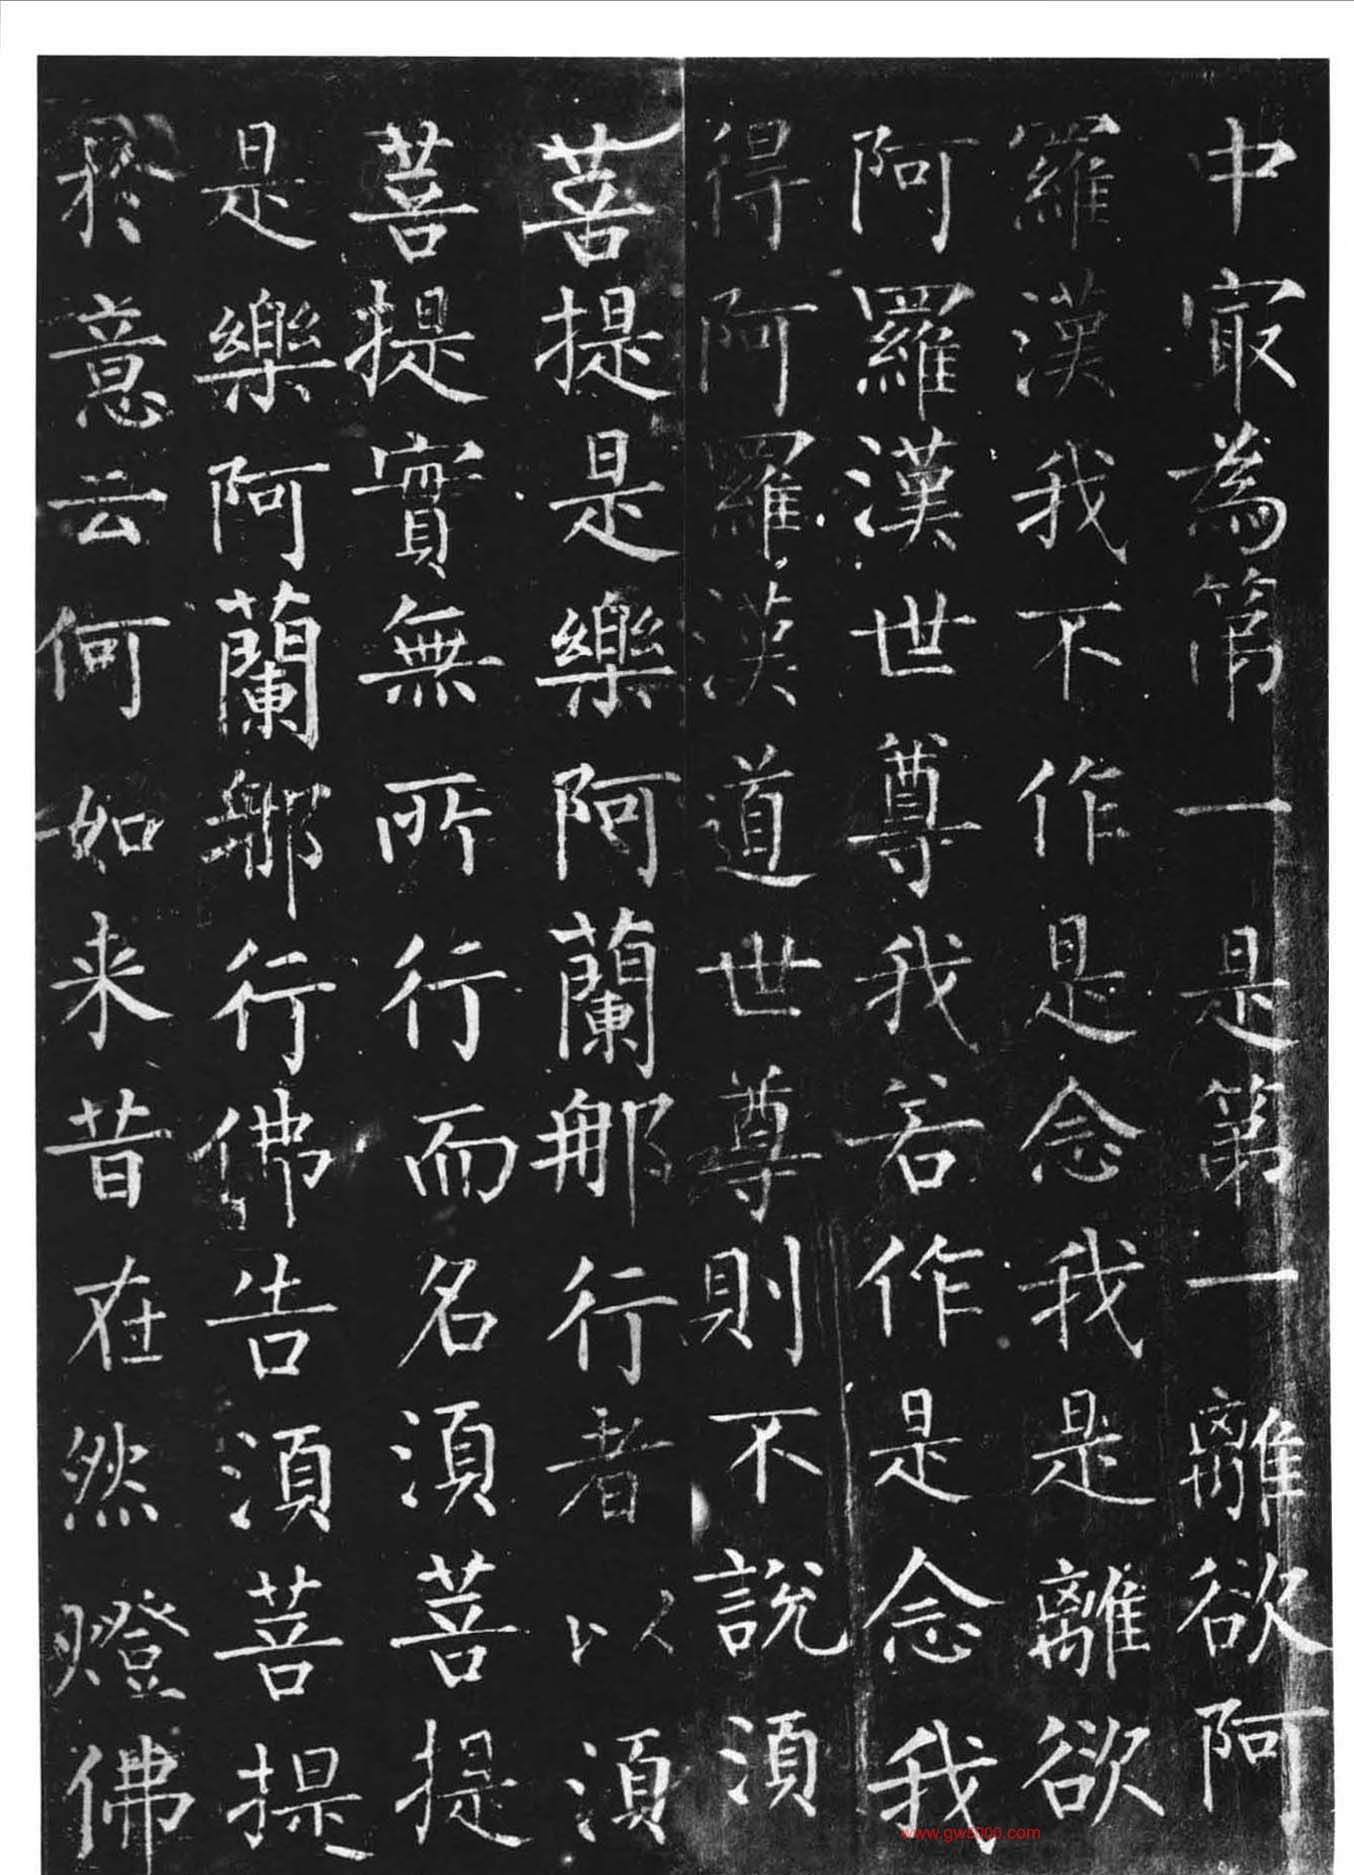 中冣為第一是第一離欲阿
羅漢我不作是念我是離欲
阿羅漢世尊我若作是念我
得阿羅漢道世尊則不說須
菩提是樂阿蘭那行者以須
菩提實無所行而名須菩提
是樂阿蘭那行佛告須菩提
於意云何如来昔在然燈佛
www.gw5000.com